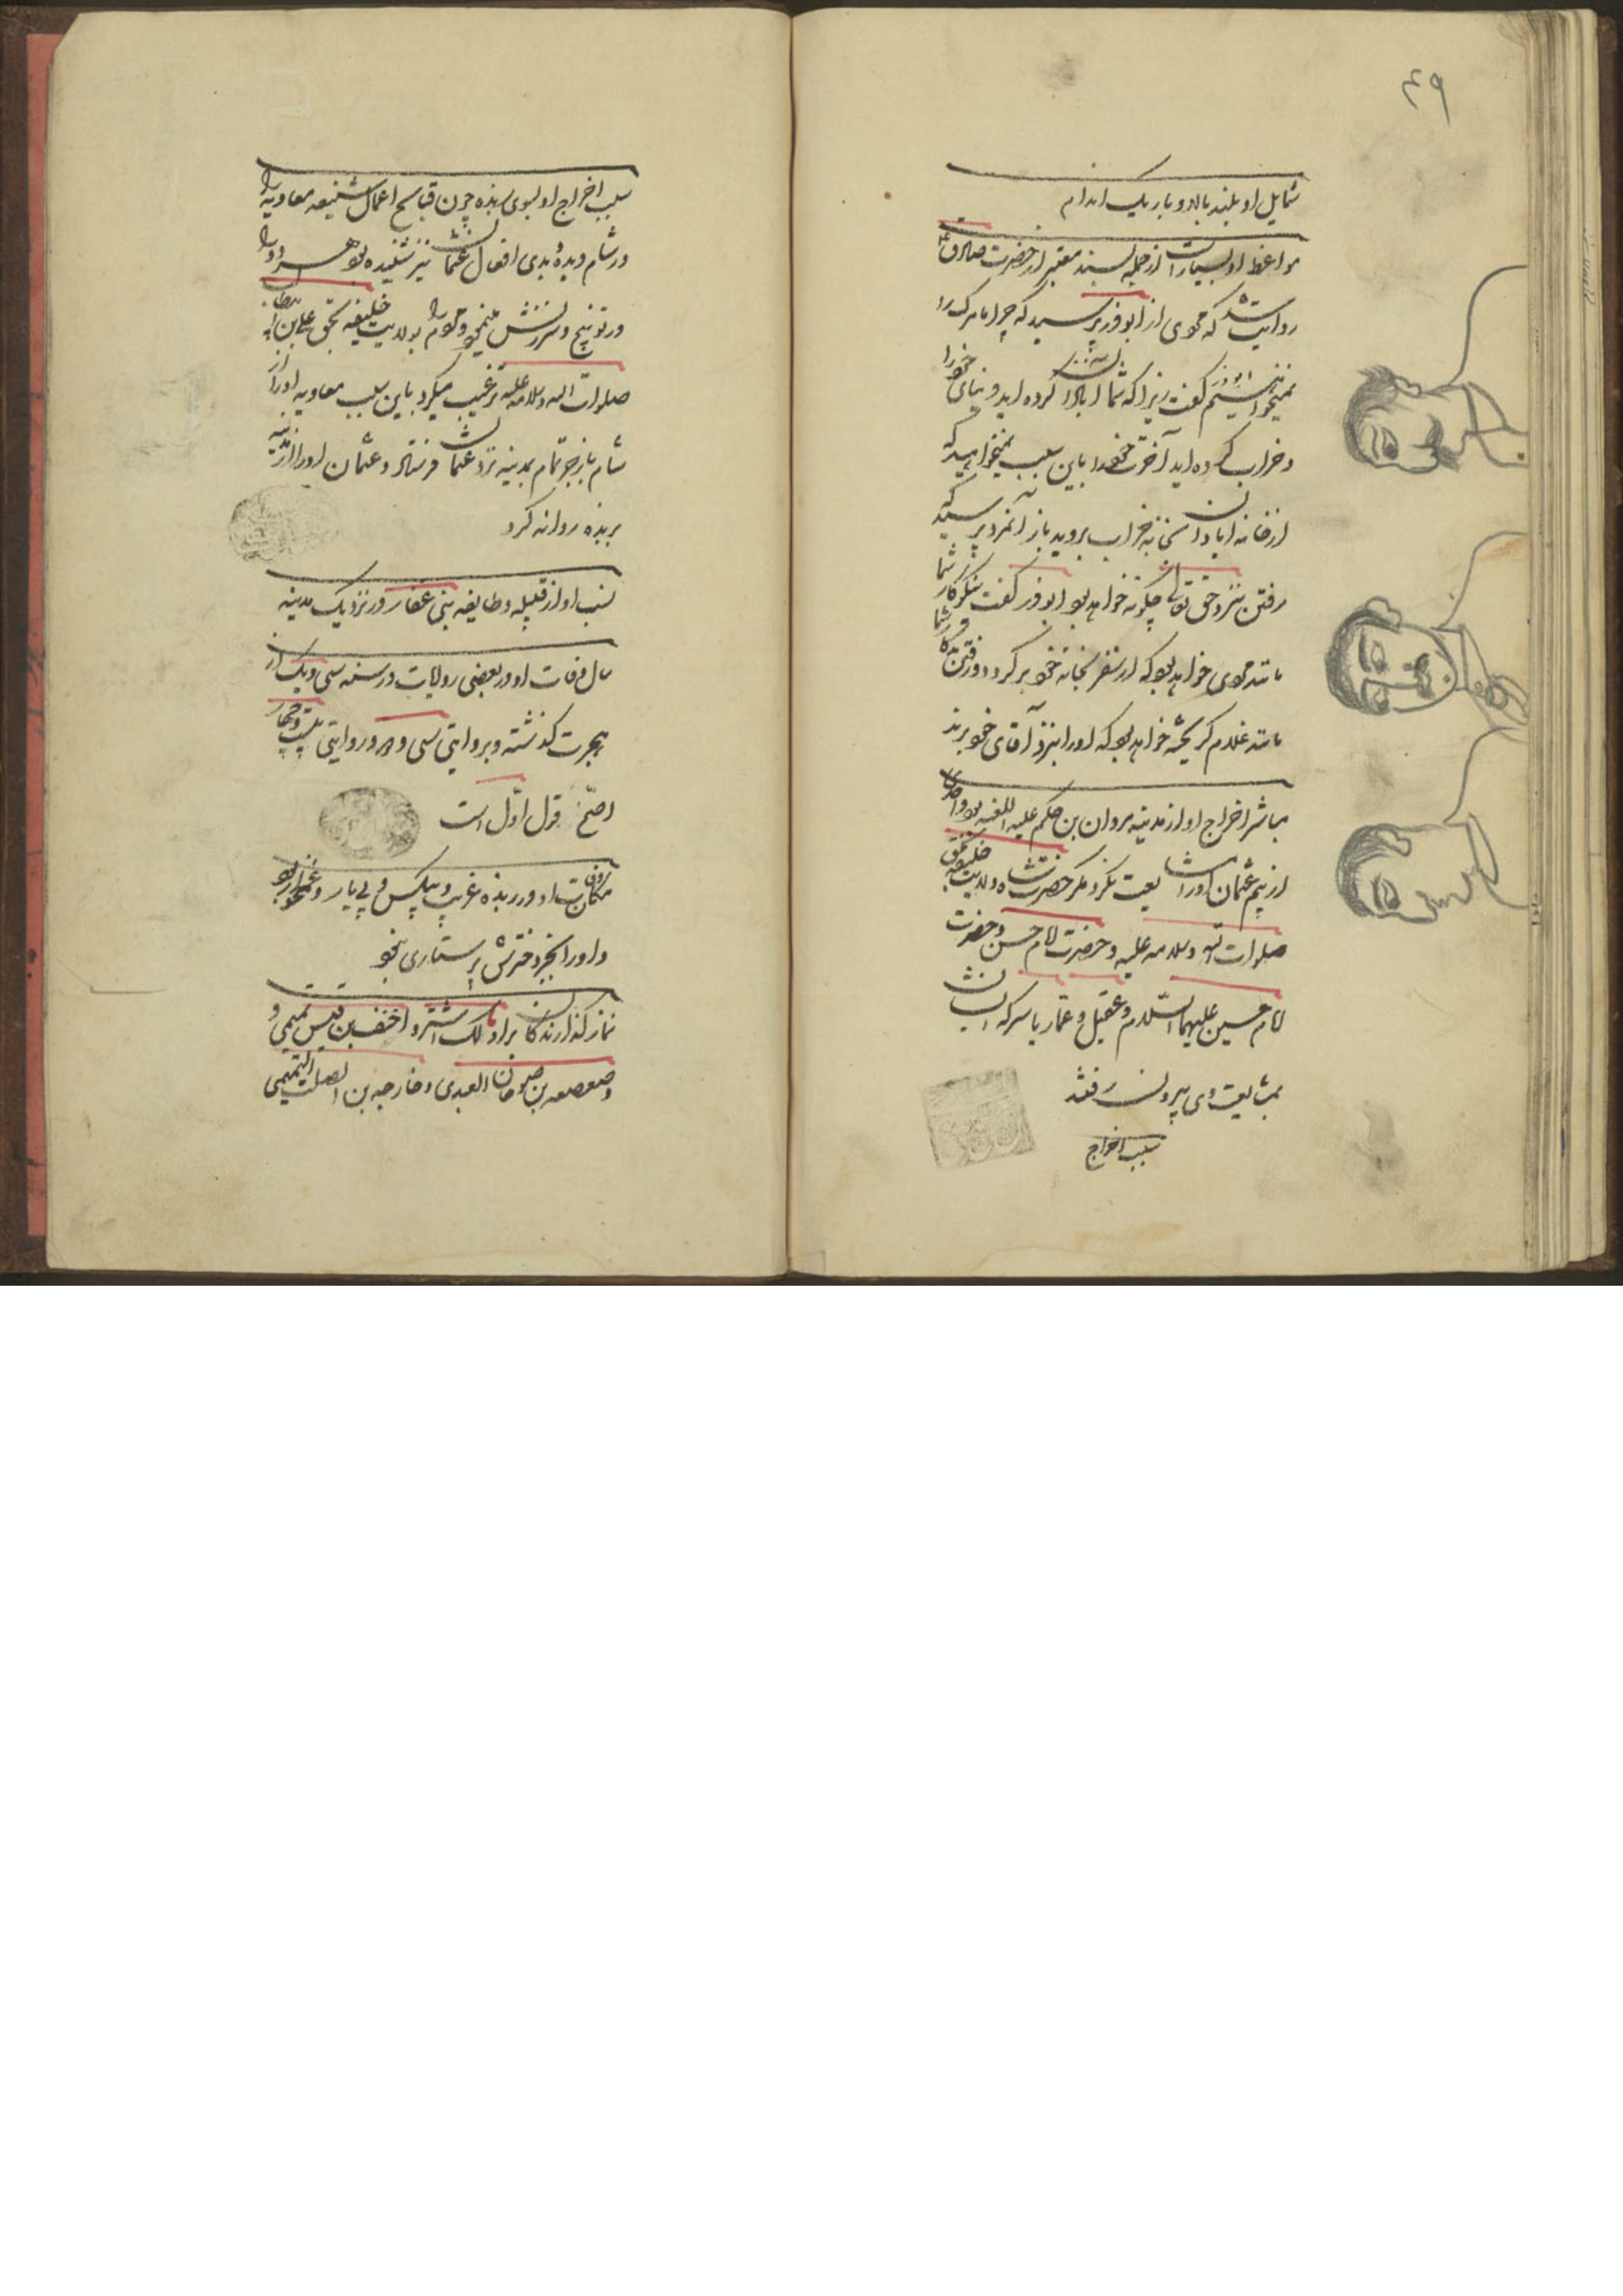 ۴۹
شمایل او بلند بالا و باریک اندام
مواعظ او بسیار است از جمله بسند معتبر از حضرت صادق ع
روایت شده که مردی از ابوذر پرسید که چرا ما مرک را
نمیخواهیم ابوذر کفت زیرا که شما آبادان کرده اید دنیای خود را
و خراب کرده اید آخرت خود را باین سبب نمیخواهید که
از خانه آبادان بخانه خراب بروید باز آنمرد پرسید که
رفتن نزد حق تعالی چکونه خواهد بود ابوذر کفت نیکوکار شما
مانند مردی خواهد بود که از سفر بخانه خود بر کردد و رفتن بدکار شما
مانند غلام کریخته خواهد بود که او را بنزد آقای خود برند
مباشر اخراج او از مدینه مروان بن حکم علیه اللعنه بود و احدی
از بیم عثمان او را مشایعت نکرد مکر حضرت شاه ولایت خلیفه بحق
صلوات الله و سلامه علیه و حضرت امام حسن و حضرت
امام حسین علیهما السلام و عقیل و عمار یاسر که ایشان
بمشایعت وی بیرون رفتند
سبب اخراج
سبب اخراج او بسوی ربذه چون قبایح اعمال شنیعه معاویه را
در شام دیده بدی افعال عثمان نیز شنیده بود هر دو را
در توبیخ و سرزنش مینمود و مردم را بولایت خلیفه بحق علی بن ابی طالب
صلوات الله و سلامه علیه ترغیب میکرد باین سبب معاویه او را از
شام بازجر تمام بمدینه نزد عثمان فرستاد و عثمان او را از مدینه
بربذه روانه کرد
نسب او از قبیله و طایفه بنی غفار در نزدیک مدینه
سال وفات او در بعضی روایات در سنه سی و یک از
هجرت کذشته و بروایتی سی و دو و روایتی بیست و چهار
اصح قول اول است
مکان وفات او در ربذه غریب و بیکس و بی یار و غمخوار بود
و او را بجز دخترش پرستاری نبود
نماز کذارندکان بر او مالک اشتر و احنف بن قیس تمیمی و
و صعصعه بن صوحان العبدی و خارجه بن الصلت التمیمی